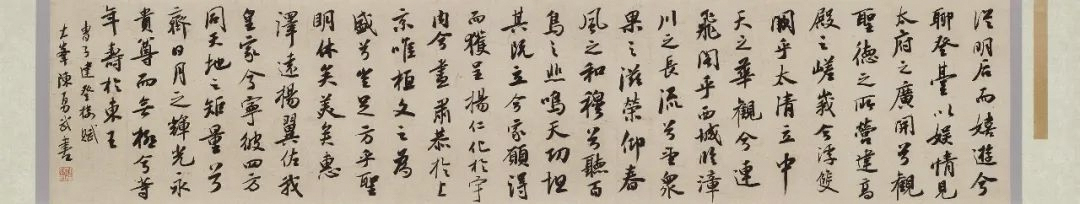 從明后而嬉遊兮
聊登臺以娛情見
太府之廣開兮觀
聖德之所營建高
殿之嵯峨兮浮雙
闕乎太清立中
天之華觀兮連
飛閣乎西城臨漳
川之長流兮望衆
果之滋榮仰春
風之和穆兮聽百
鳥之悲鳴天功坦
其既立兮家願得
而獲呈揚仁化於宇
内兮盡肅恭於上
京唯桓文之為
盛兮豈足方乎聖
明休矣美矣惠
澤遠揚翼佐我
皇家兮寧彼四方
同天地之矩量兮
齊日月之輝光永
貴尊而無極兮等
年壽於東王
曹子建登樓賦
陳勇武書